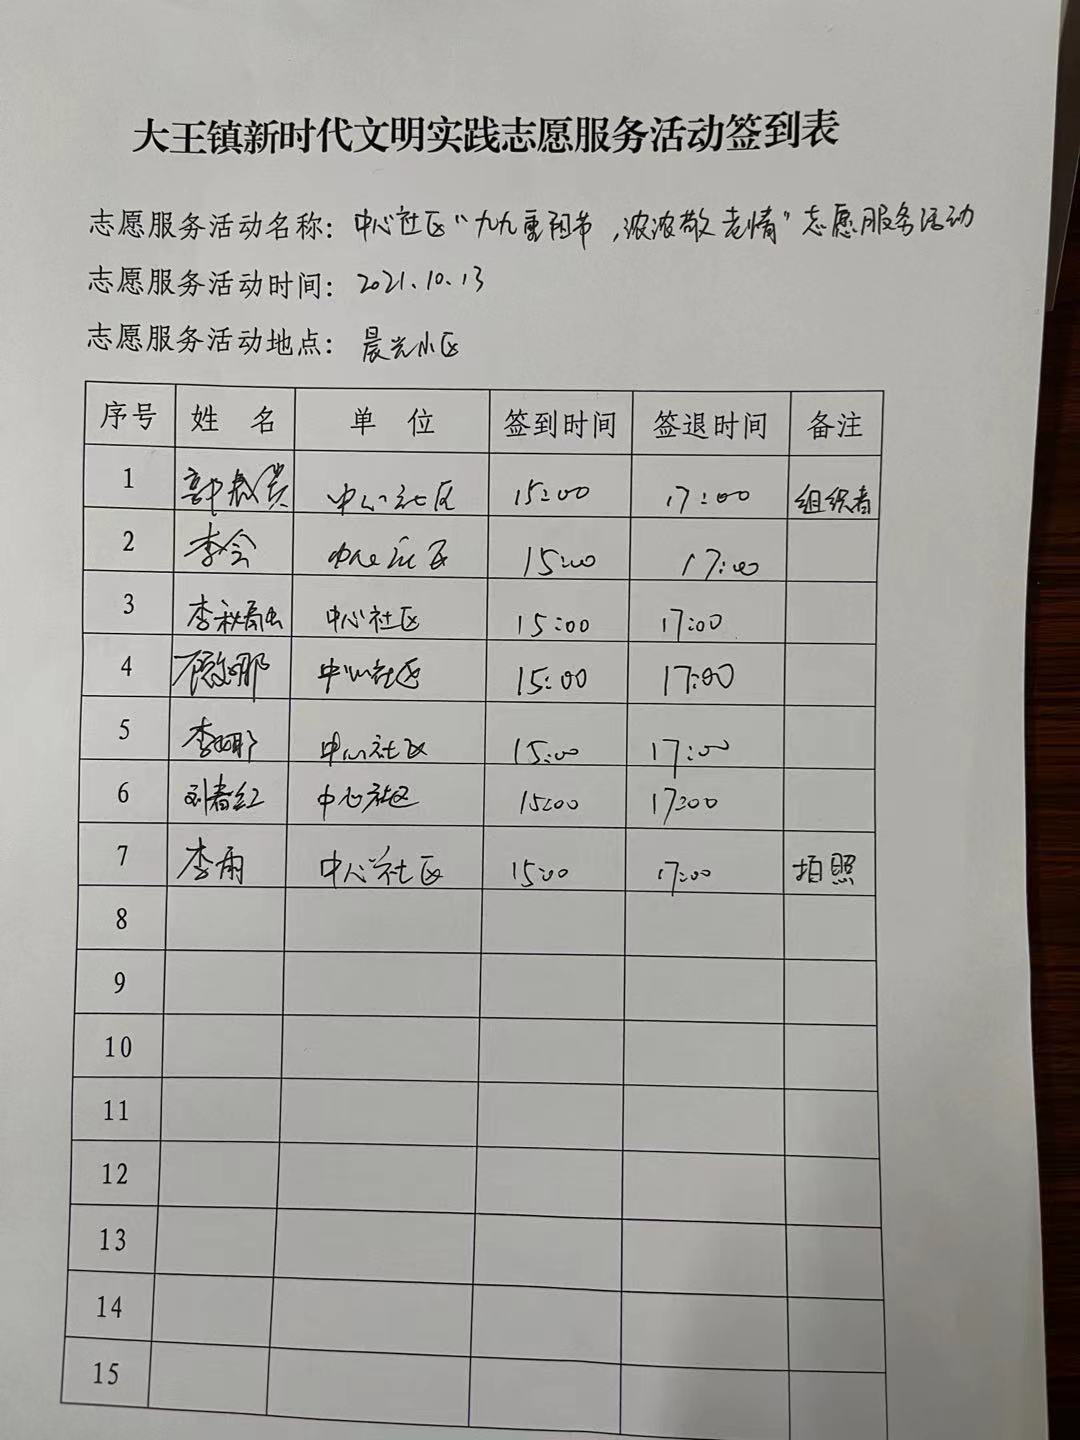 大王镇新时代文明实践志愿服务活动签到表
志愿服务活动名称：中心社区“九九重阳节，浓浓敬老情”志愿服务活动
志愿服务活动时间：2021.10.13
志愿服务活动地点：晨光小区
序号 姓 名 单 位 签到时间 签退时间 备注
1 中心社区 15:00 17:00 组织者
2 李会 中心社区 15:00 17:00
3 中心社区 15:00 17:00
4 中心社区 15:00 17:00
5 李娜 中心社区 15:00 17:00
6 刘春红 中心社区 15:00 17:00
7 李雨 中心社区 15:00 17:00 拍照
8
9
10
11
12
13
14
15